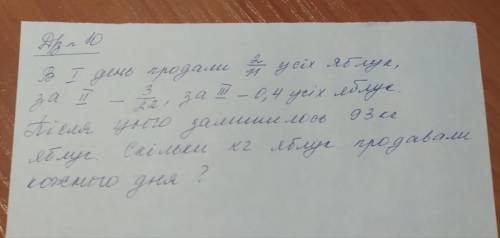 Др п 10
В I день продали 2/11 усіх яблук,
за II – 3/22, за III – 0,4 усіх яблук.
Після цього залишилось 93 кг
яблук. Скільки кг яблук продавали
кожного дня ?